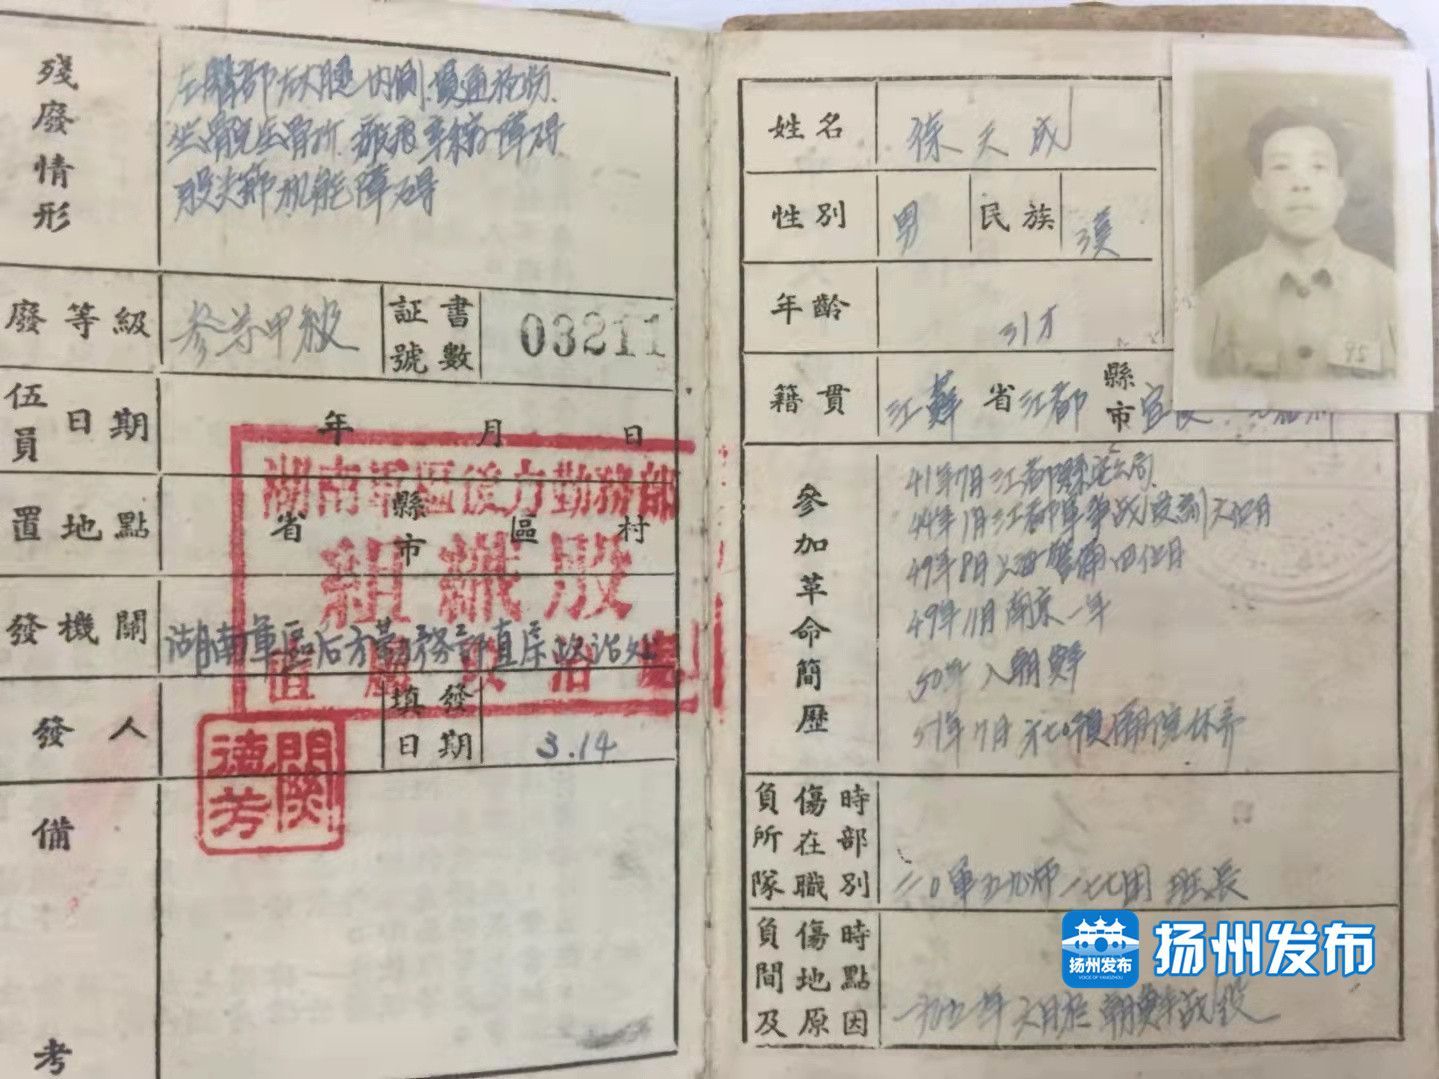 殘廢情形
左臀部左大腿内侧.貫通枪伤.
障碍.
股关節机能障碍
廢等級
参等甲级
証書號數
03211
伍員日期
年 月 日
置地點
省 縣市 區 村
湖南軍區後方勤務部
組織股
直屬政治處
發機關
湖南軍區后方勤務部直属政治处
發人
填發日期
3.14
關德芳
備考
姓名
徐天成
性別
男
民族
漢
年齡
31才
籍貫
江蘇 省 江都 縣市
參加革命簡歷
41年7月江都縣公安局.
44年1月江都
49年8月上海警備四個月
49年11月南京一年
50年入朝鮮
51年7月
負傷時所在部隊職別
二〇軍五九师一七七团 班長
負傷時間地點及原因
一九五一年 六月於 朝鮮战役
95
扬州发布
扬州发布
VOICE OF YANGZHOU